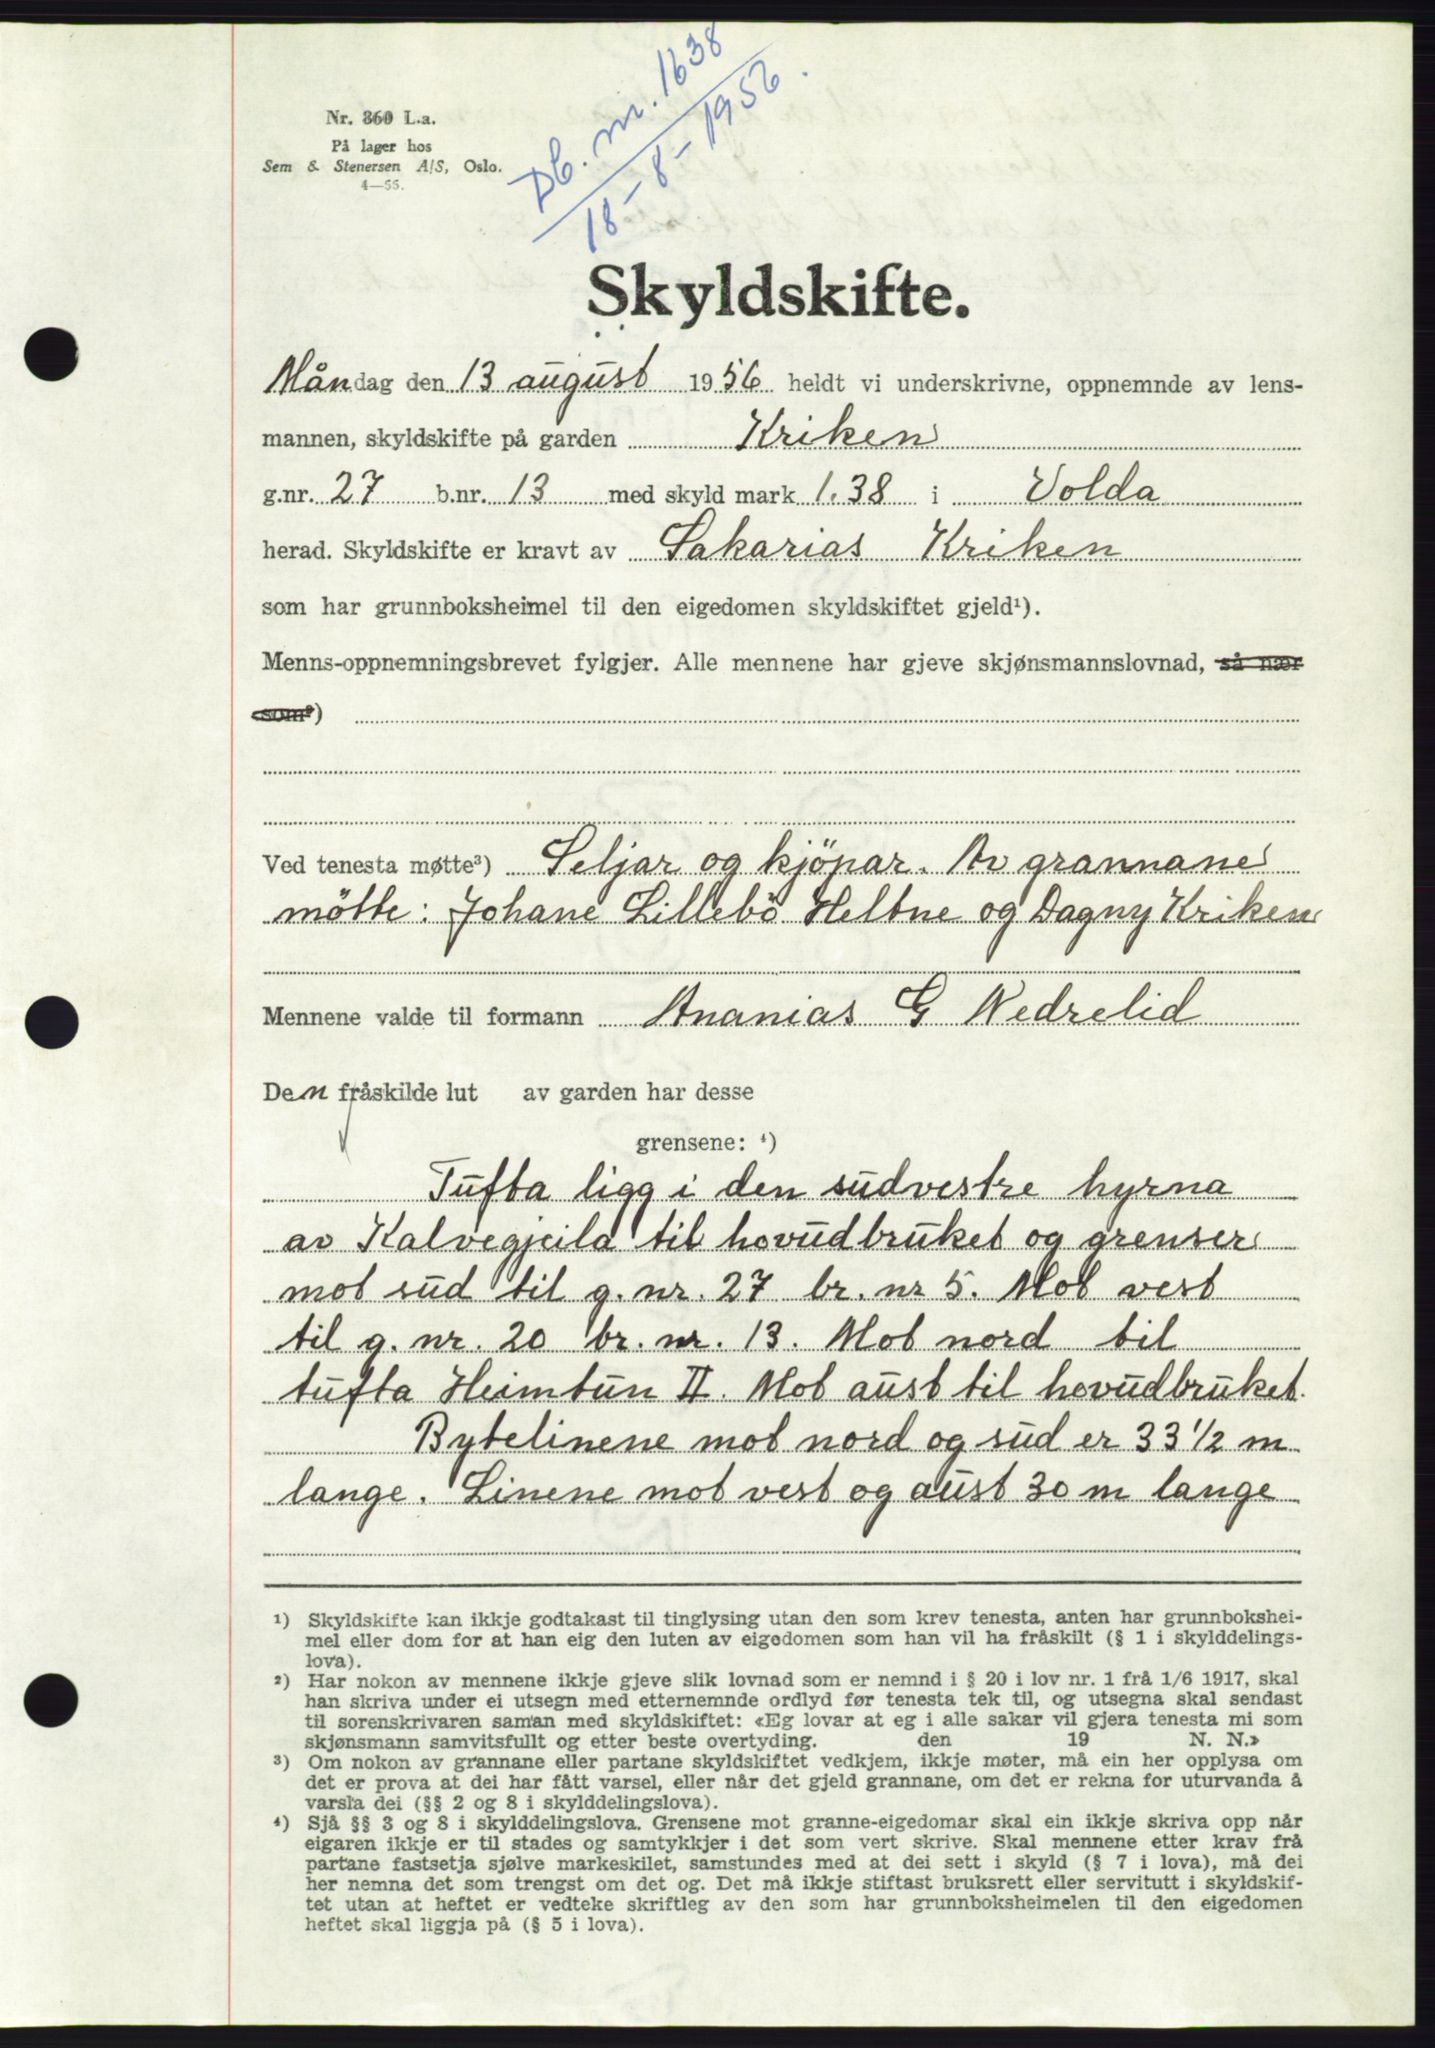 Db. nr. 1638
18-8-1956.
Nr. 360 L.a.
På lager hos
Sem & Stenersen A/S, Oslo.
4—55.
Skyldskifte.
Måndag den 13 august 1956 heldt vi underskrivne, oppnemnde av lens-
mannen, skyldskifte på garden Kriken
g.nr. 27 b.nr. 13 med skyld mark 1.38 i Volda
herad. Skyldskifte er kravt av Sakarias Kriken
som har grunnboksheimel til den eigedomen skyldskiftet gjeld¹).
Menns-oppnemningsbrevet fylgjer. Alle mennene har gjeve skjønsmannslovnad, så nær
som²)
Ved tenesta møtte³) Seljar og kjöpar. Av grannane
mötte: Johane Lillebö Heltne og Dagny Kriken
Mennene valde til formann Ananias G Nedrelid
Den fråskilde lut av garden har desse
grensene: ⁴)
Tufta ligg i den sudvestre hyrna
av Kalvegjeila til hovudbruket og grenser
mot sud til g. nr. 27 br. nr 5. Mot vest
til g. nr. 20 br. nr. 13. Mot nord til
tufta Heimtun II. Mot aust til hovudbruket.
Bytelinene mot nord og sud er 33 ½ m
lange. Linene mot vest og aust 30 m lange
¹) Skyldskifte kan ikkje godtakast til tinglysing utan den som krev tenesta, anten har grunnbokshei-
mel eller dom for at han eig den luten av eigedomen som han vil ha fråskilt (§ 1 i skylddelings-
lova).
²) Har nokon av mennene ikkje gjeve slik lovnad som er nemnd i § 20 i lov nr. 1 frå 1/6 1917, skal
han skriva under ei utsegn med etternemnde ordlyd før tenesta tek til, og utsegna skal sendast
til sorenskrivaren saman med skyldskiftet: «Eg lovar at eg i alle sakar vil gjera tenesta mi som
skjønsmann samvitsfullt og etter beste overtyding. den 19 N. N.»
³) Om nokon av grannane eller partane skyldskiftet vedkjem, ikkje møter, må ein her opplysa om
det er prova at dei har fått varsel, eller når det gjeld grannane, om det er rekna for uturvanda å
varsla dei (§§ 2 og 8 i skylddelingslova).
⁴) Sjå §§ 3 og 8 i skylddelingslova. Grensene mot granne-eigedomar skal ein ikkje skriva opp når
eigaren ikkje er til stades og samtykkjer i det som vert skrive. Skal mennene etter krav frå
partane fastsetja sjølve markeskilet, samstundes med at dei sett i skyld (§ 7 i lova), må dei
her nemna det som trengst om det og. Det må ikkje stiftast bruksrett eller servitutt i skyldskif-
tet utan at heftet er vedteke skriftleg av den som har grunnboksheimelen til den eigedomen
heftet skal liggja på (§ 5 i lova).